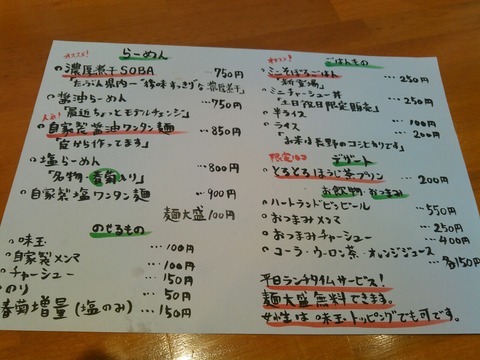 らーめん
オススメ!
濃厚煮干SOBA …750円
"たぶん県内一"後味すっきりな濃厚煮干"
醤油らーめん …750円
「最近ちょっとモデルチェンジ」
人気!
自家製醤油ワンタン麺 …850円
「皮から作ってます」
塩らーめん …800円
「名物・春菊入り」
自家製塩ワンタン麺 …900円
麺大盛100円
のせるもの
味玉 …100円
自家製メンマ …100円
チャーシュー …150円
のり …50円
春菊増量(塩のみ) …150円
ごはんもの
オススメ!
ミニそぼろごはん …250円
「新登場」
ミニチャーシュー丼 …250円
「土日祝日限定販売」
半ライス …100円
ライス …200円
「お米は長野のコシヒカリです」
デザート
限定10コ
とろとろほうじ茶プリン …200円
お飲物・おつまみ
ハートランドビンビール …550円
おつまみメンマ …250円
おつまみチャーシュー …400円
コーラ・ウーロン茶・オレンジジュース …各150円
平日ランチタイムサービス!
麺大盛無料できます。
女性は味玉トッピングでも可です。